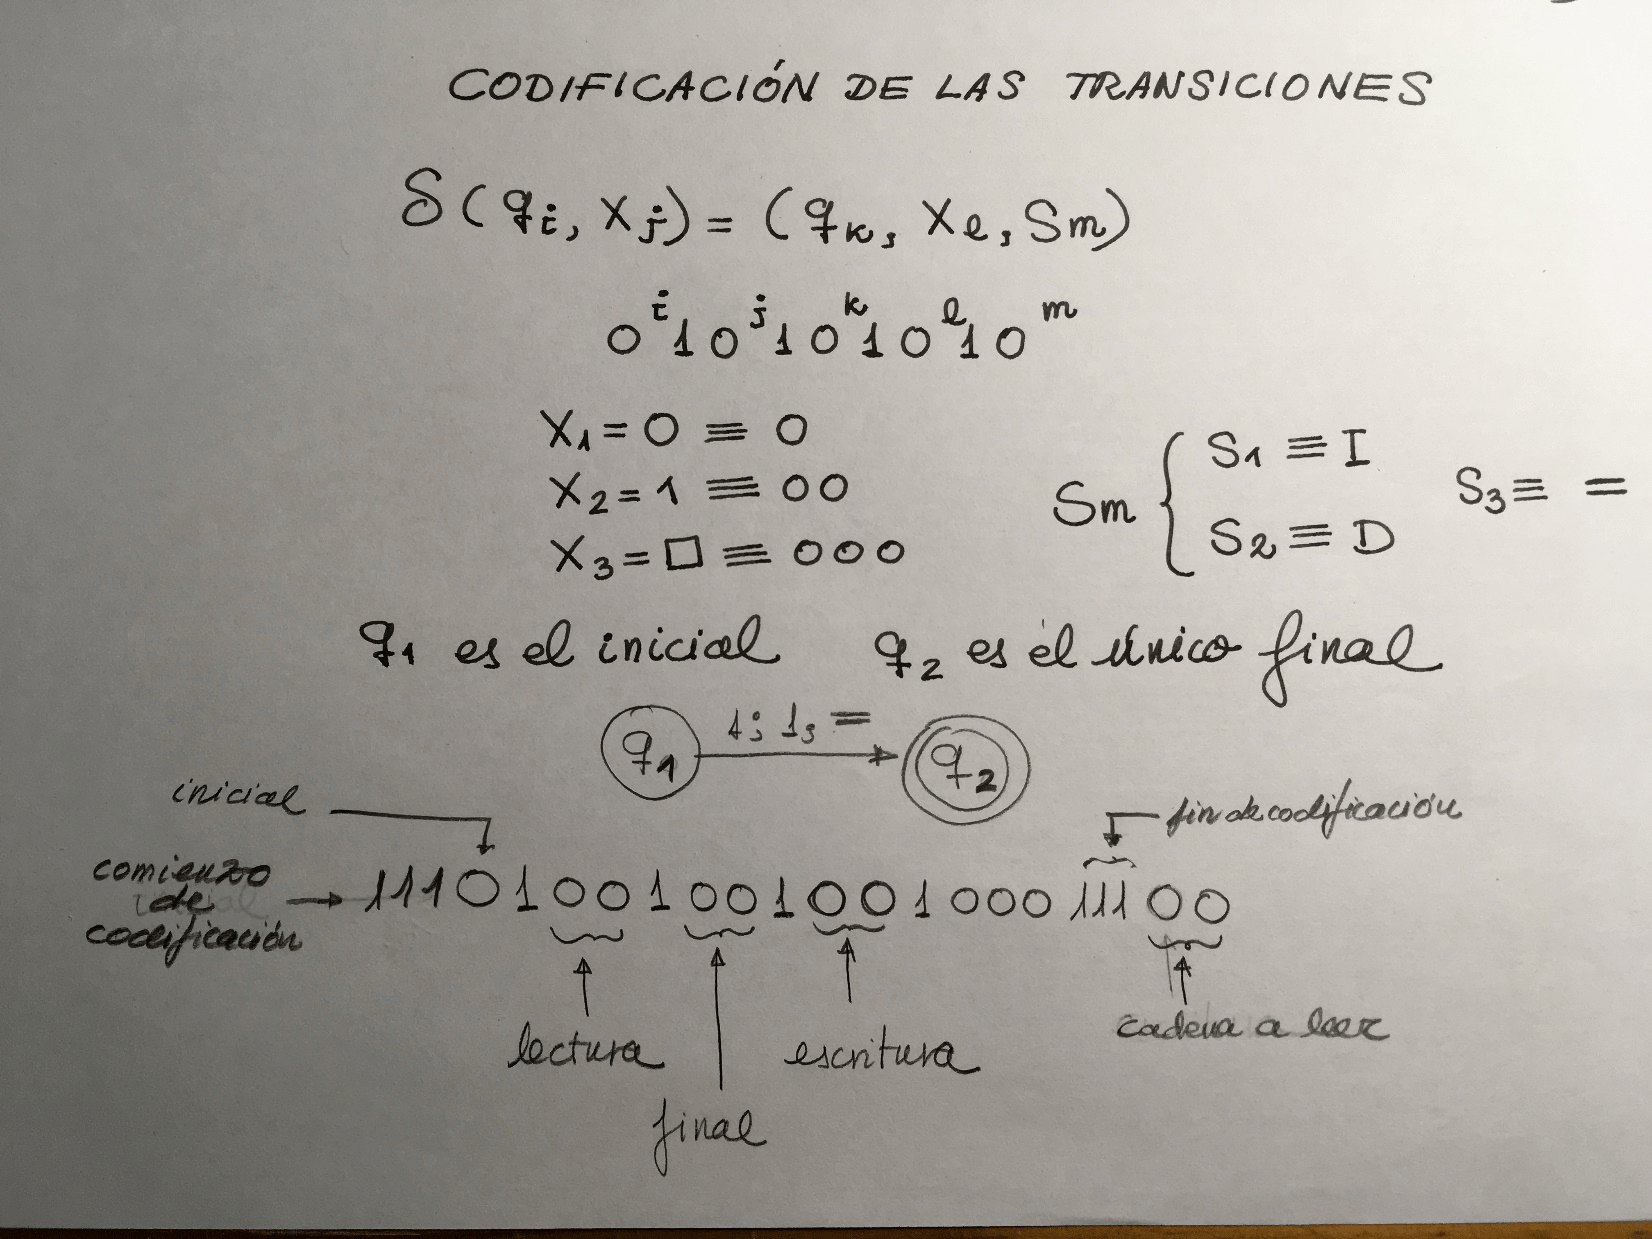 CODIFICACIÓN DE LAS TRANSICIONES
δ(qi, Xj) = (qk, Xl, Sm)
0^i 1 0^j 1 0^k 1 0^l 1 0^m
X1 = 0 ≡ 0
X2 = 1 ≡ 00
X3 = □ ≡ 000
Sm { S1 ≡ I
S2 ≡ D
S3 ≡ =
q1 es el inicial q2 es el único final
q1 1; 1, = q2
inicial
fin de codificación
comienzo
de
codificación
→ 1110100100100100011100
lectura
final
escritura
cadena a leer